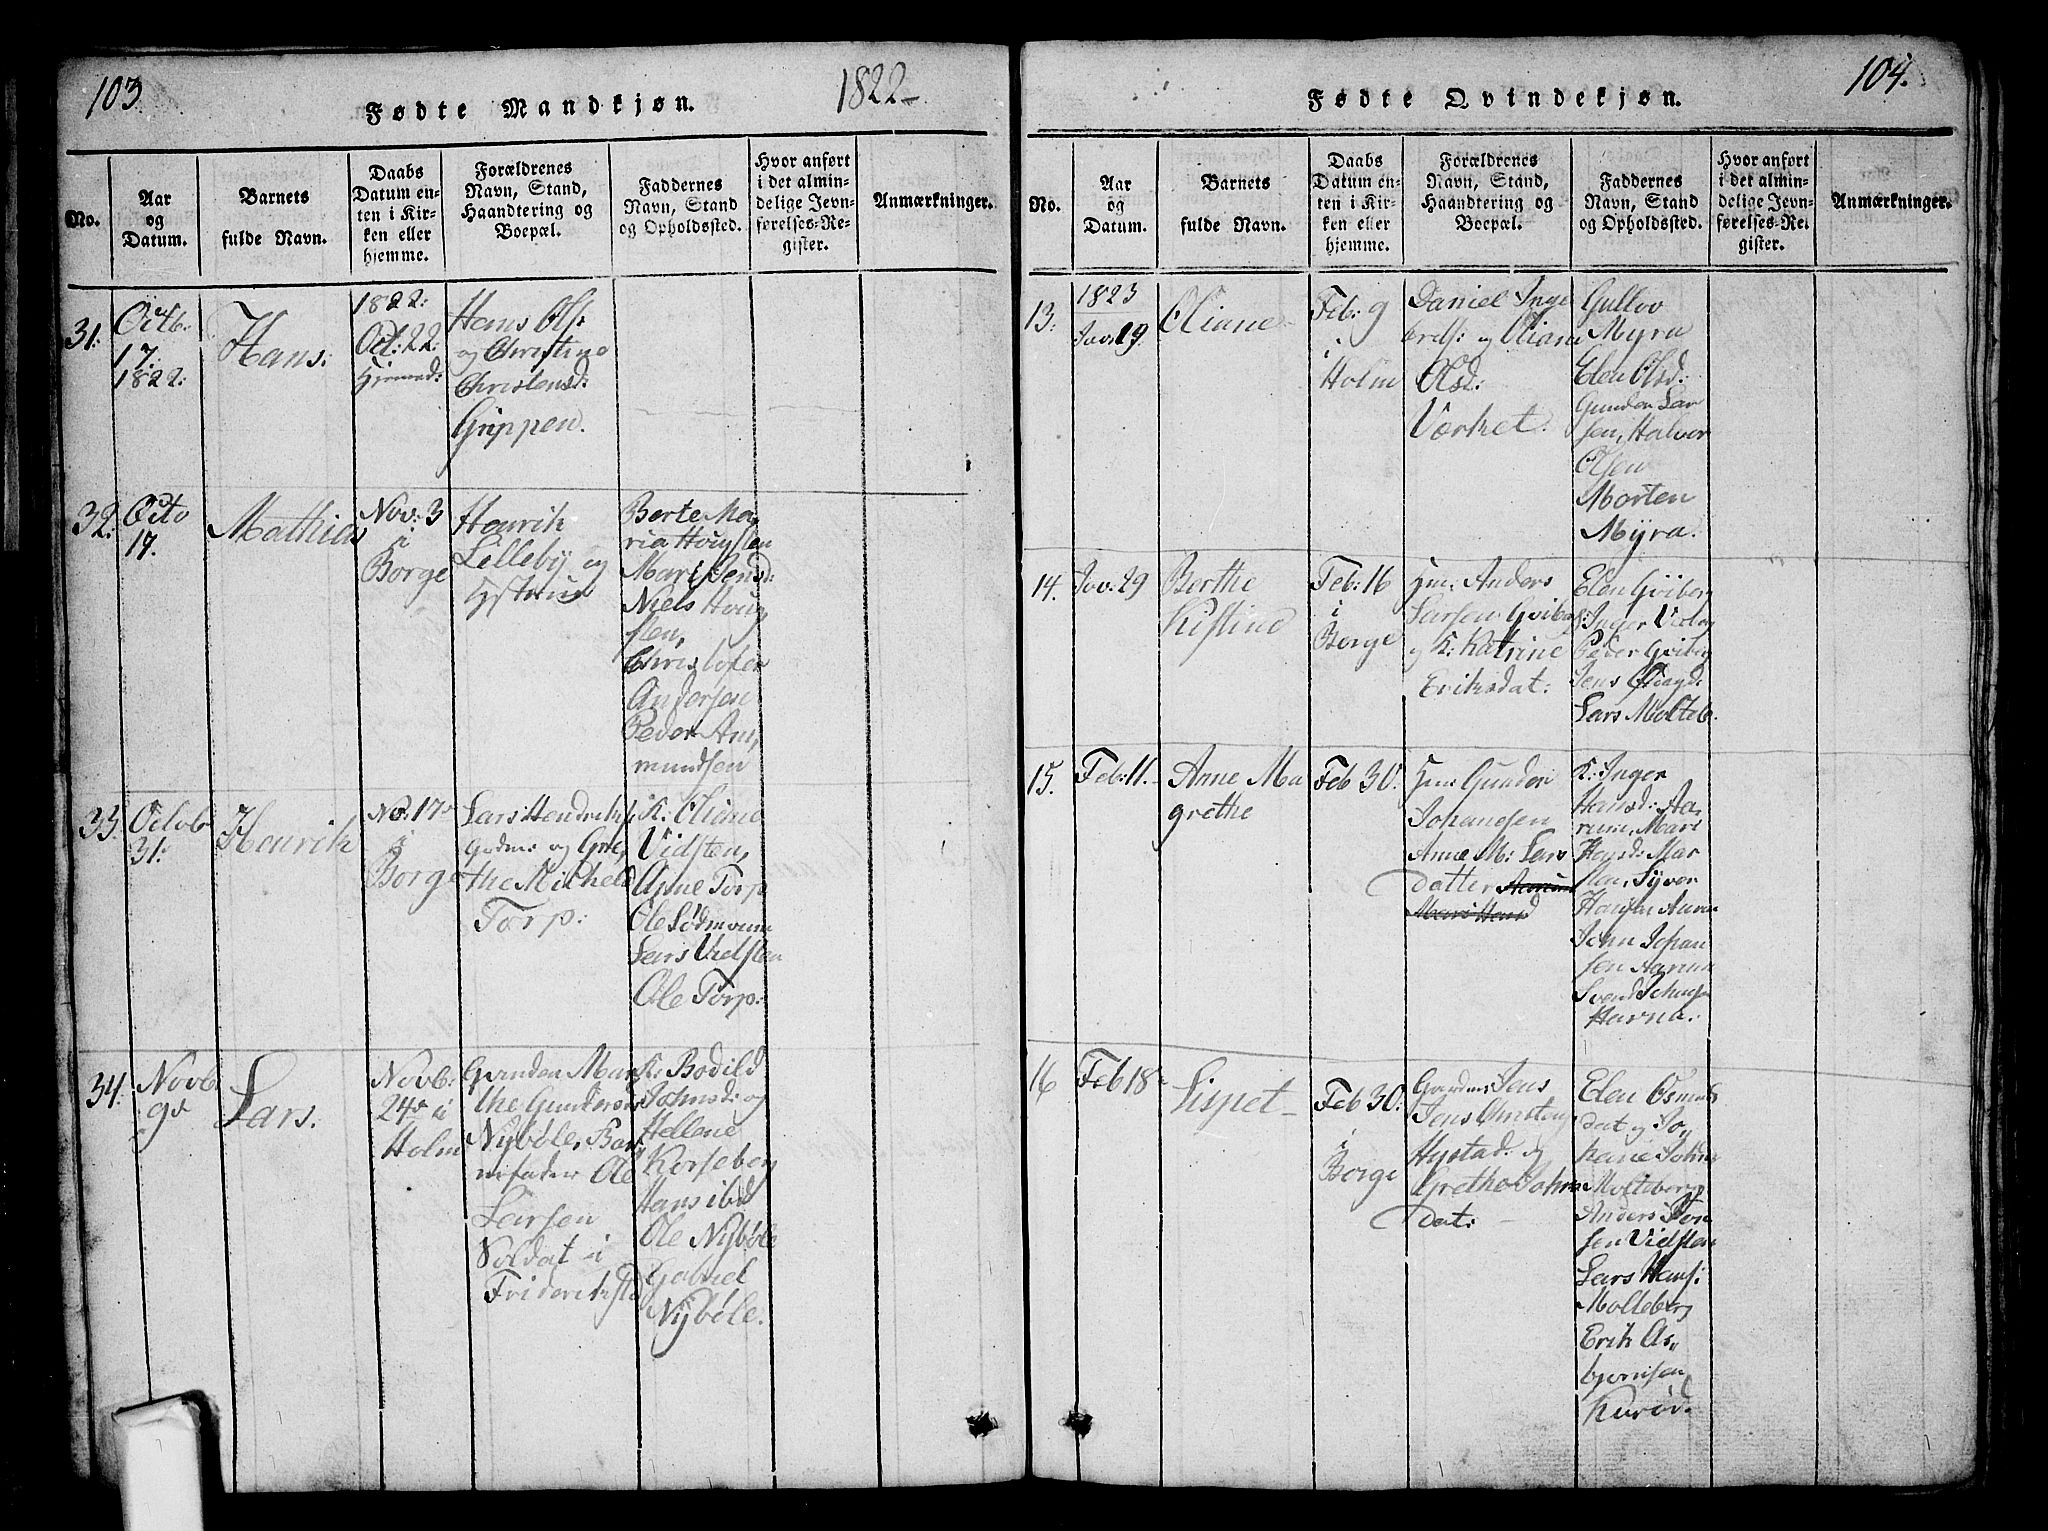 103
Fødte Mandkjøn.
1822
No.
Aar
og
Datum.
Barnets
fulde Navn.
Daabs
Datum en-
ten i Kir-
ken eller
hjemme.
Forældrenes
Navn, Stand,
Haandtering og
Boepæl.
Faddernes
Navn, Stand
og Opholdssted.
Hvor anført
i det almin-
delige Jevn-
førelses-Re-
gister.
Anmærkninger.
31:
Octb:
17:
1822:
Hans:
1822:
Oct: 22:
Hans Ols:
og Christine
Christensd:
Grippen.
32:
Octo
17.
Mathias
Nov: 3
i
Borge
Henrik
Lilleby og
Berte Ma,
ria Hougsten
Mari Jensd:
Niels Houg
sten,
Christofer
Andersen
Peder Am,
mundsen
33.
Octob
31:
Henrik
No: 17
i
Borge
Lars Hendriks
og Gre,
the Michels
Torp:
K: Oliane
Vidsten,
Anne Torp
Ole
Lars Vidsten
Ole Torp:
34:
Novb:
9
Lars.
Novb:
24 i
Holm
Gunden Mar
the Gunders
Nybøle, Bar
nefader Ole
Larsen
Soldat i
Frideriksstd
K: Bodild
Johnsd: og
Hellene
Korseberg
Hans ibd
Ole Nybøle
Gabriel
Nybøle.
104.
Fødte Qvindekjøn.
No.
Aar
og
Datum.
Barnets
fulde Navn.
Daabs
Datum en-
ten i Kir-
ken eller
hjemme.
Forældrenes
Navn, Stand,
Haandtering og
Boepæl.
Faddernes
Navn, Stand
og Opholdssted.
Hvor anført
i det almin-
delige Jevn-
førelses-Re-
gister.
Anmærkninger.
13:
1823
Jav: 19.
Oliane
Feb: 9
i
Holm
Daniel Inge
brets: og Oliane
Olsd:
Værket.
Gullov
Myra
Elen Olsd:
Gunder Lar
sen, Halvor
Olsen
Morten
Myra.
14.
Jav: 29
Berthe
Kistine
Feb: 16
i
Borge
Hm: Anders
Larsen Gviberg
og K: Katrine
Eriksdat:
Elen Gviberg
Inger
Peder Gviberg
Jens
Lars Molteb.
15.
Feb: 11.
Anne Ma
grethe
Feb 30.
Hm: Gunder
Johansen
Anne M: Lars
datter
K: Inger
Hansd: Aa,
rum, Mari
Hansd: Mar
Syver
Hansen Aarum
John Johan
sen Aarum
Svend
Havna:
16
Feb 18
Lispet
Feb 30:
i
Borge
Jens
Jens Christens
Hystad: og
Grethe Johns
dat:
Elen Osmunds
dat og Jo,
hane Johns
Molteberg
Anders Ton
sen Vidsten
Lars Hans:
Molteberg
Erik As,
bjørnsen
Kurød.